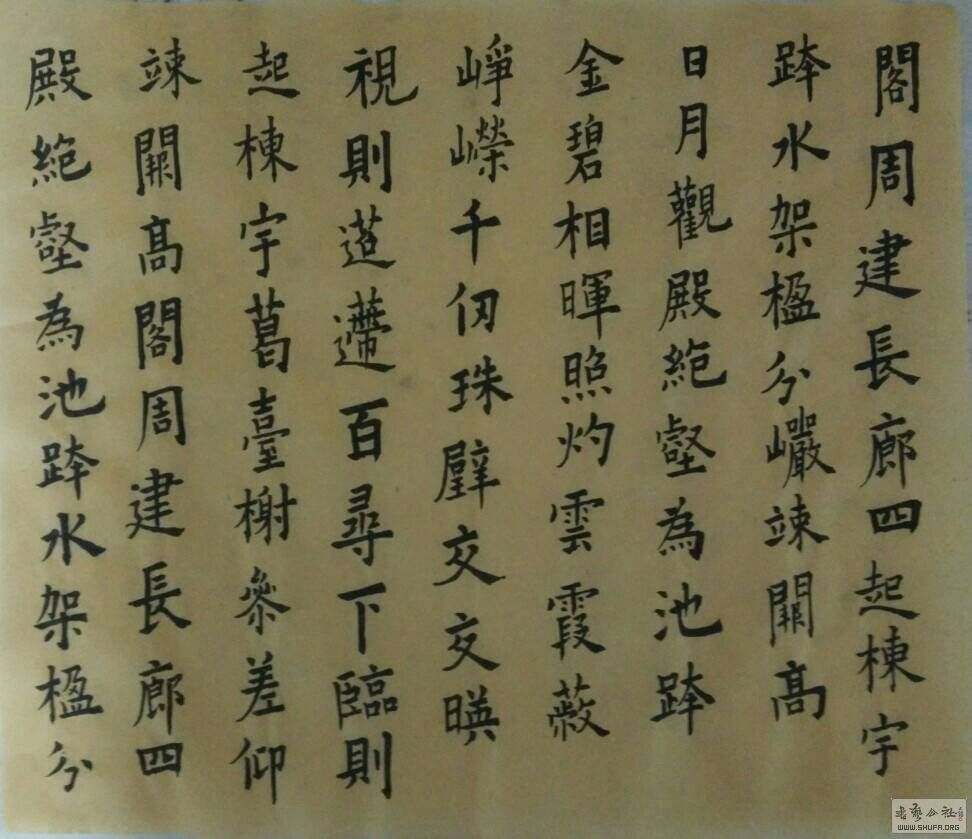 閣周建長廊四起棟宇
跨水架楹分巖竦闕高
日月觀殿絕壑為池跨
金碧相暉照灼雲霞蔽
崢嶸千仞珠璧交交暎
視則迢遰百尋下臨則
起棟宇葛臺榭參差仰
竦闕高閣周建長廊四
殿絕壑為池跨水架楹分
書藝公社
WWW.SHUFA.ORG